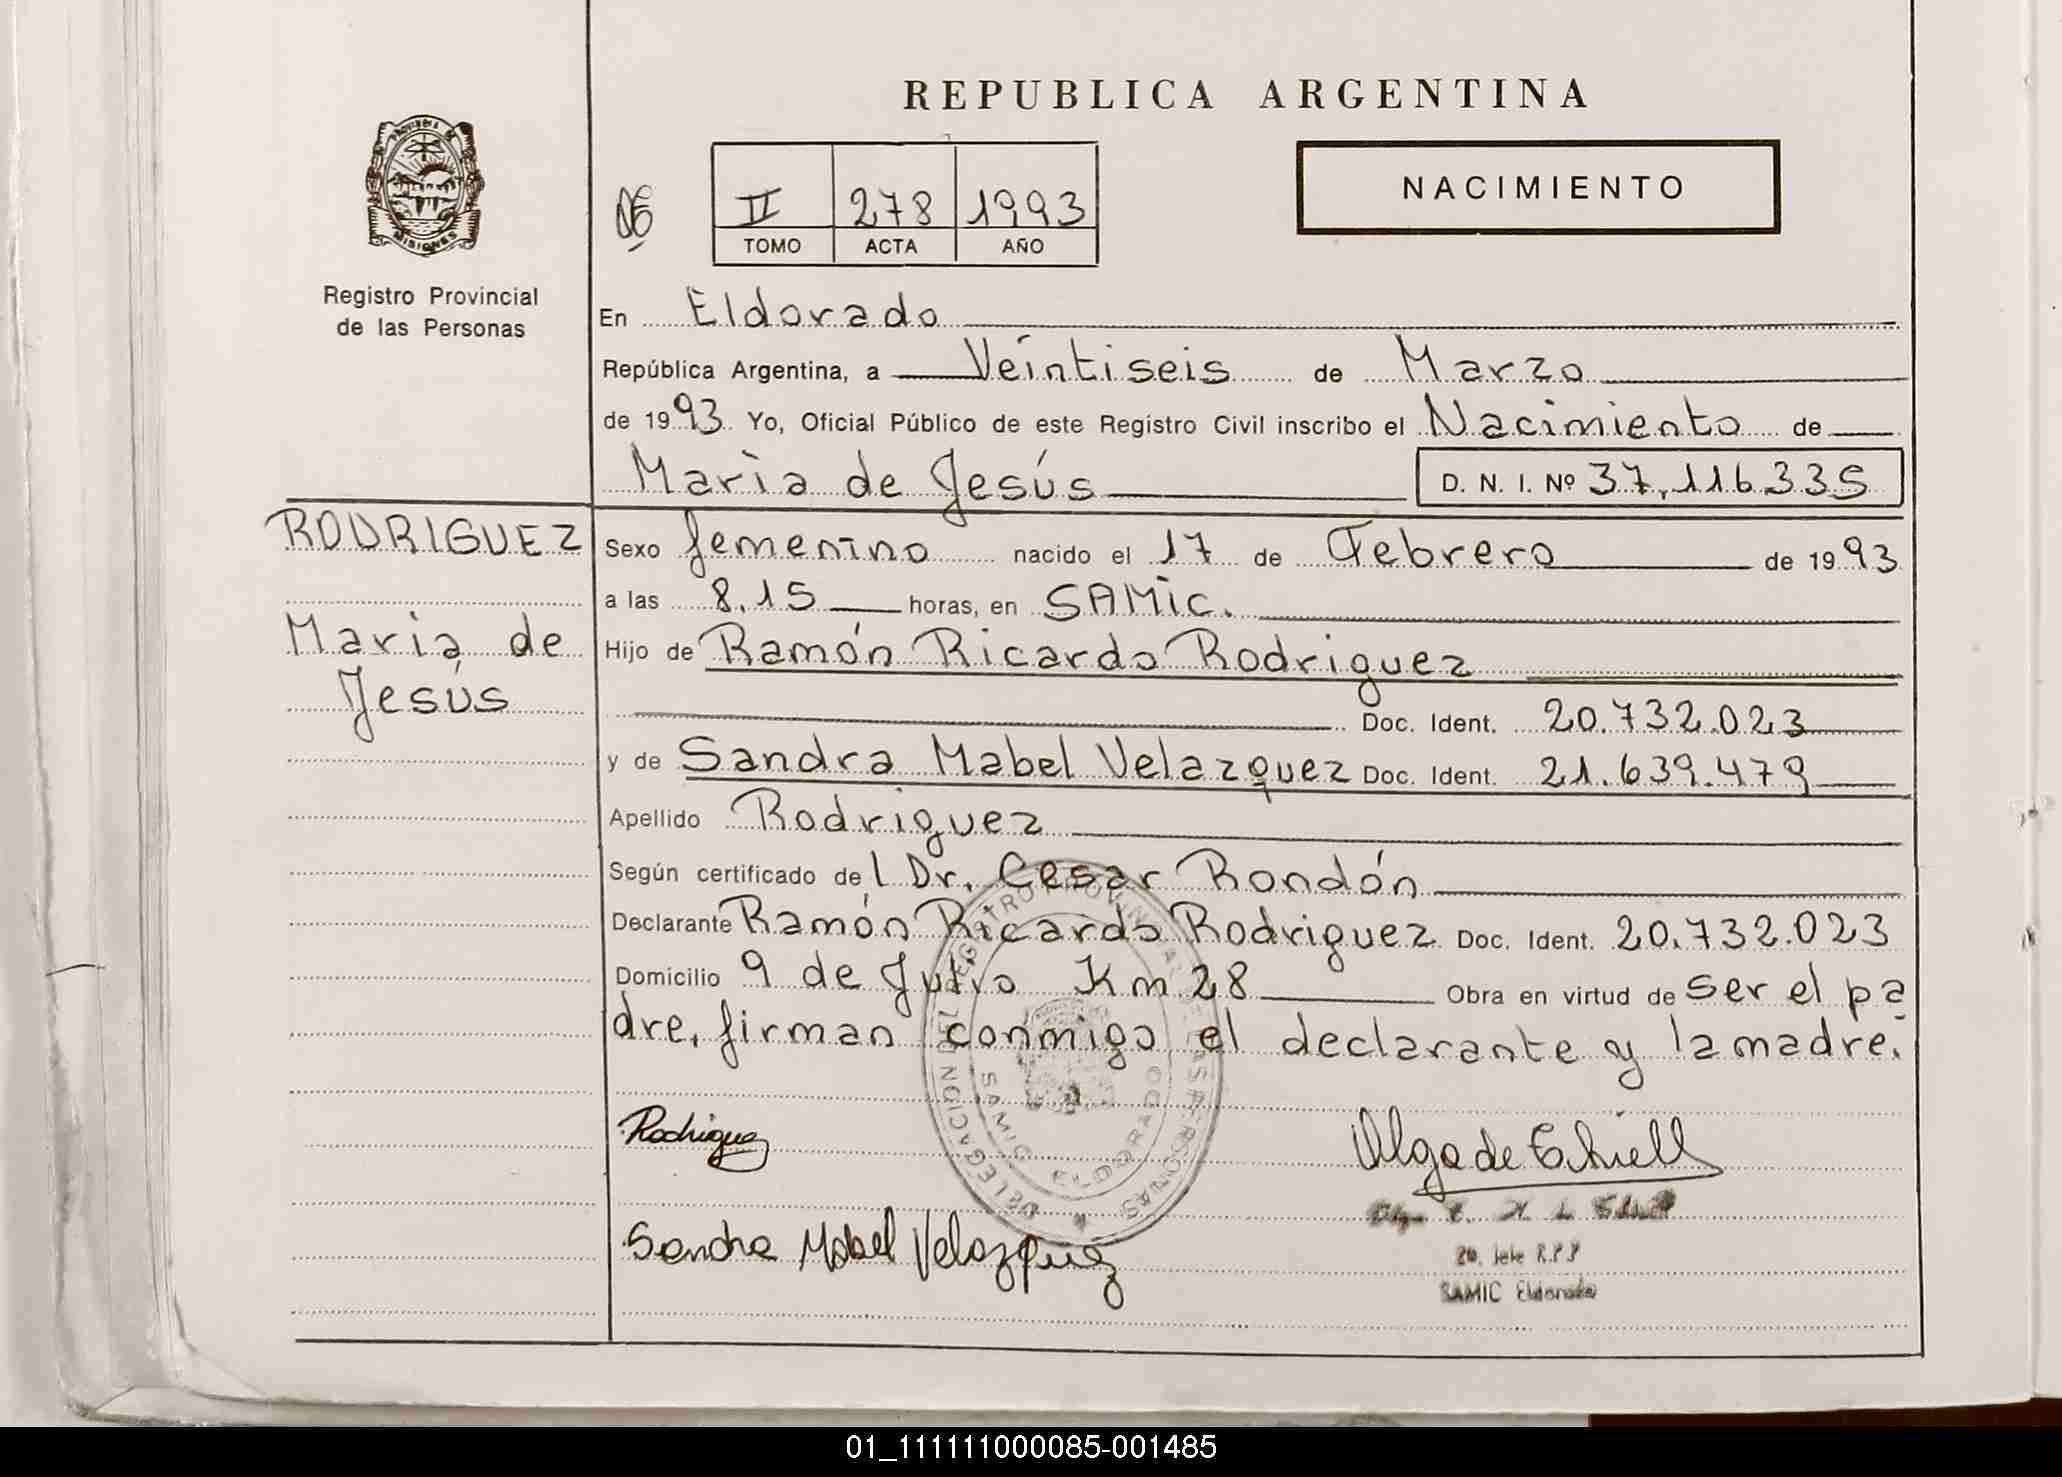 REPUBLICA ARGENTINA
PROVINCIA DE
MISIONES
Registro Provincial
de las Personas
II 278 1993
TOMO ACTA AÑO
NACIMIENTO
En Eldorado
República Argentina, a Veintiseis de Marzo
de 1993 Yo, Oficial Público de este Registro Civil inscribo el Nacimiento de
Maria de Jesús D. N. I. Nº 37.116.335
RODRIGUEZ
Maria de
Jesús
Sexo femenino nacido el 17 de Febrero de 1993
a las 8.15 horas, en SAMiC.
Hijo de Ramón Ricardo Rodriguez
Doc. Ident. 20.732.023
y de Sandra Mabel Velazquez Doc. Ident. 21.639.479
Apellido Rodriguez
Según certificado del Dr. Cesar Rondón
Declarante Ramón Ricardo Rodriguez Doc. Ident. 20.732.023
Domicilio 9 de Julio Km 28 Obra en virtud de ser el pa
dre, firman conmigo el declarante y la madre.
DELEGACION DEL REGISTRO PROVINCIAL DE LAS PERSONAS
SAMIC ELDORADO
Rodriguez
Olga de
Sandra Mabel Velazquez
Jefe R.P.P
SAMIC Eldorado
01_111111000085-001485